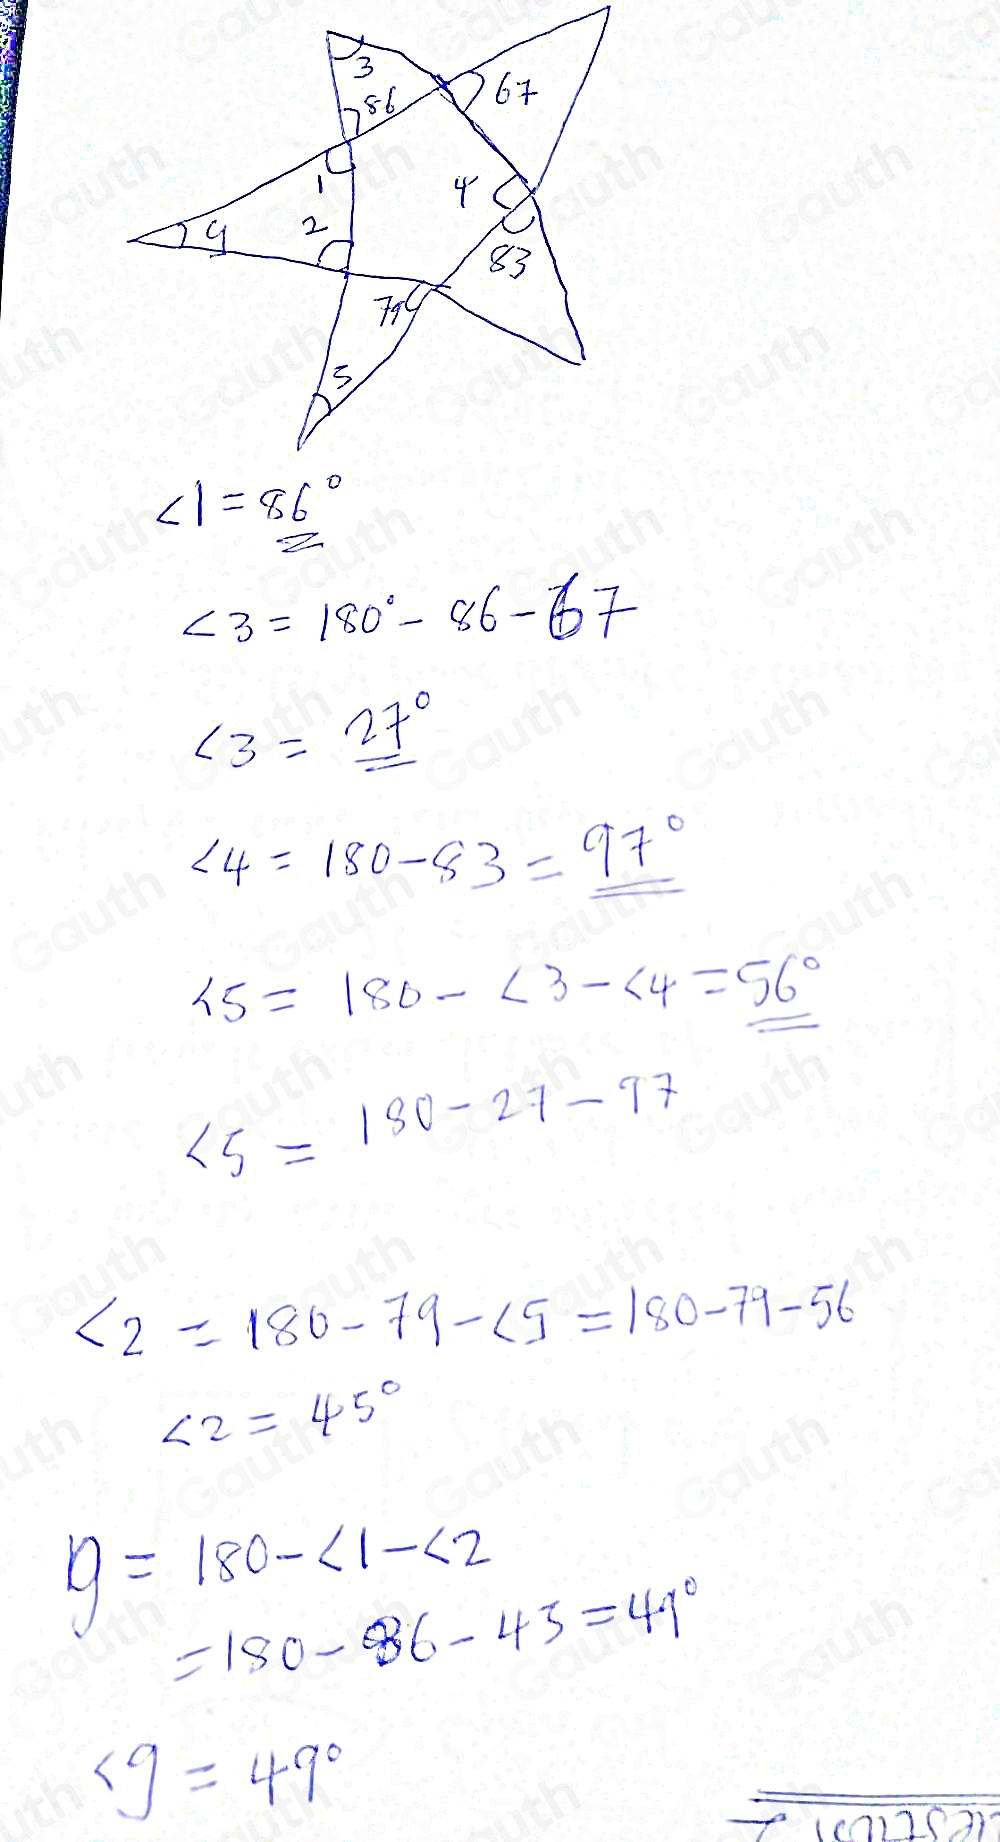 3
86
67
1
4
9
2
83
79
5
<1 = 86°
<3 = 180° - 86 - 67
<3 = 27°
<4 = 180 - 83 = 97°
<5 = 180 - <3 - <4 = 56°
<5 = 180 - 27 - 97
<2 = 180 - 79 - <5 = 180 - 79 - 56
<2 = 45°
g = 180 - <1 - <2
= 180 - 86 - 45 = 49°
<g = 49°
Gauth